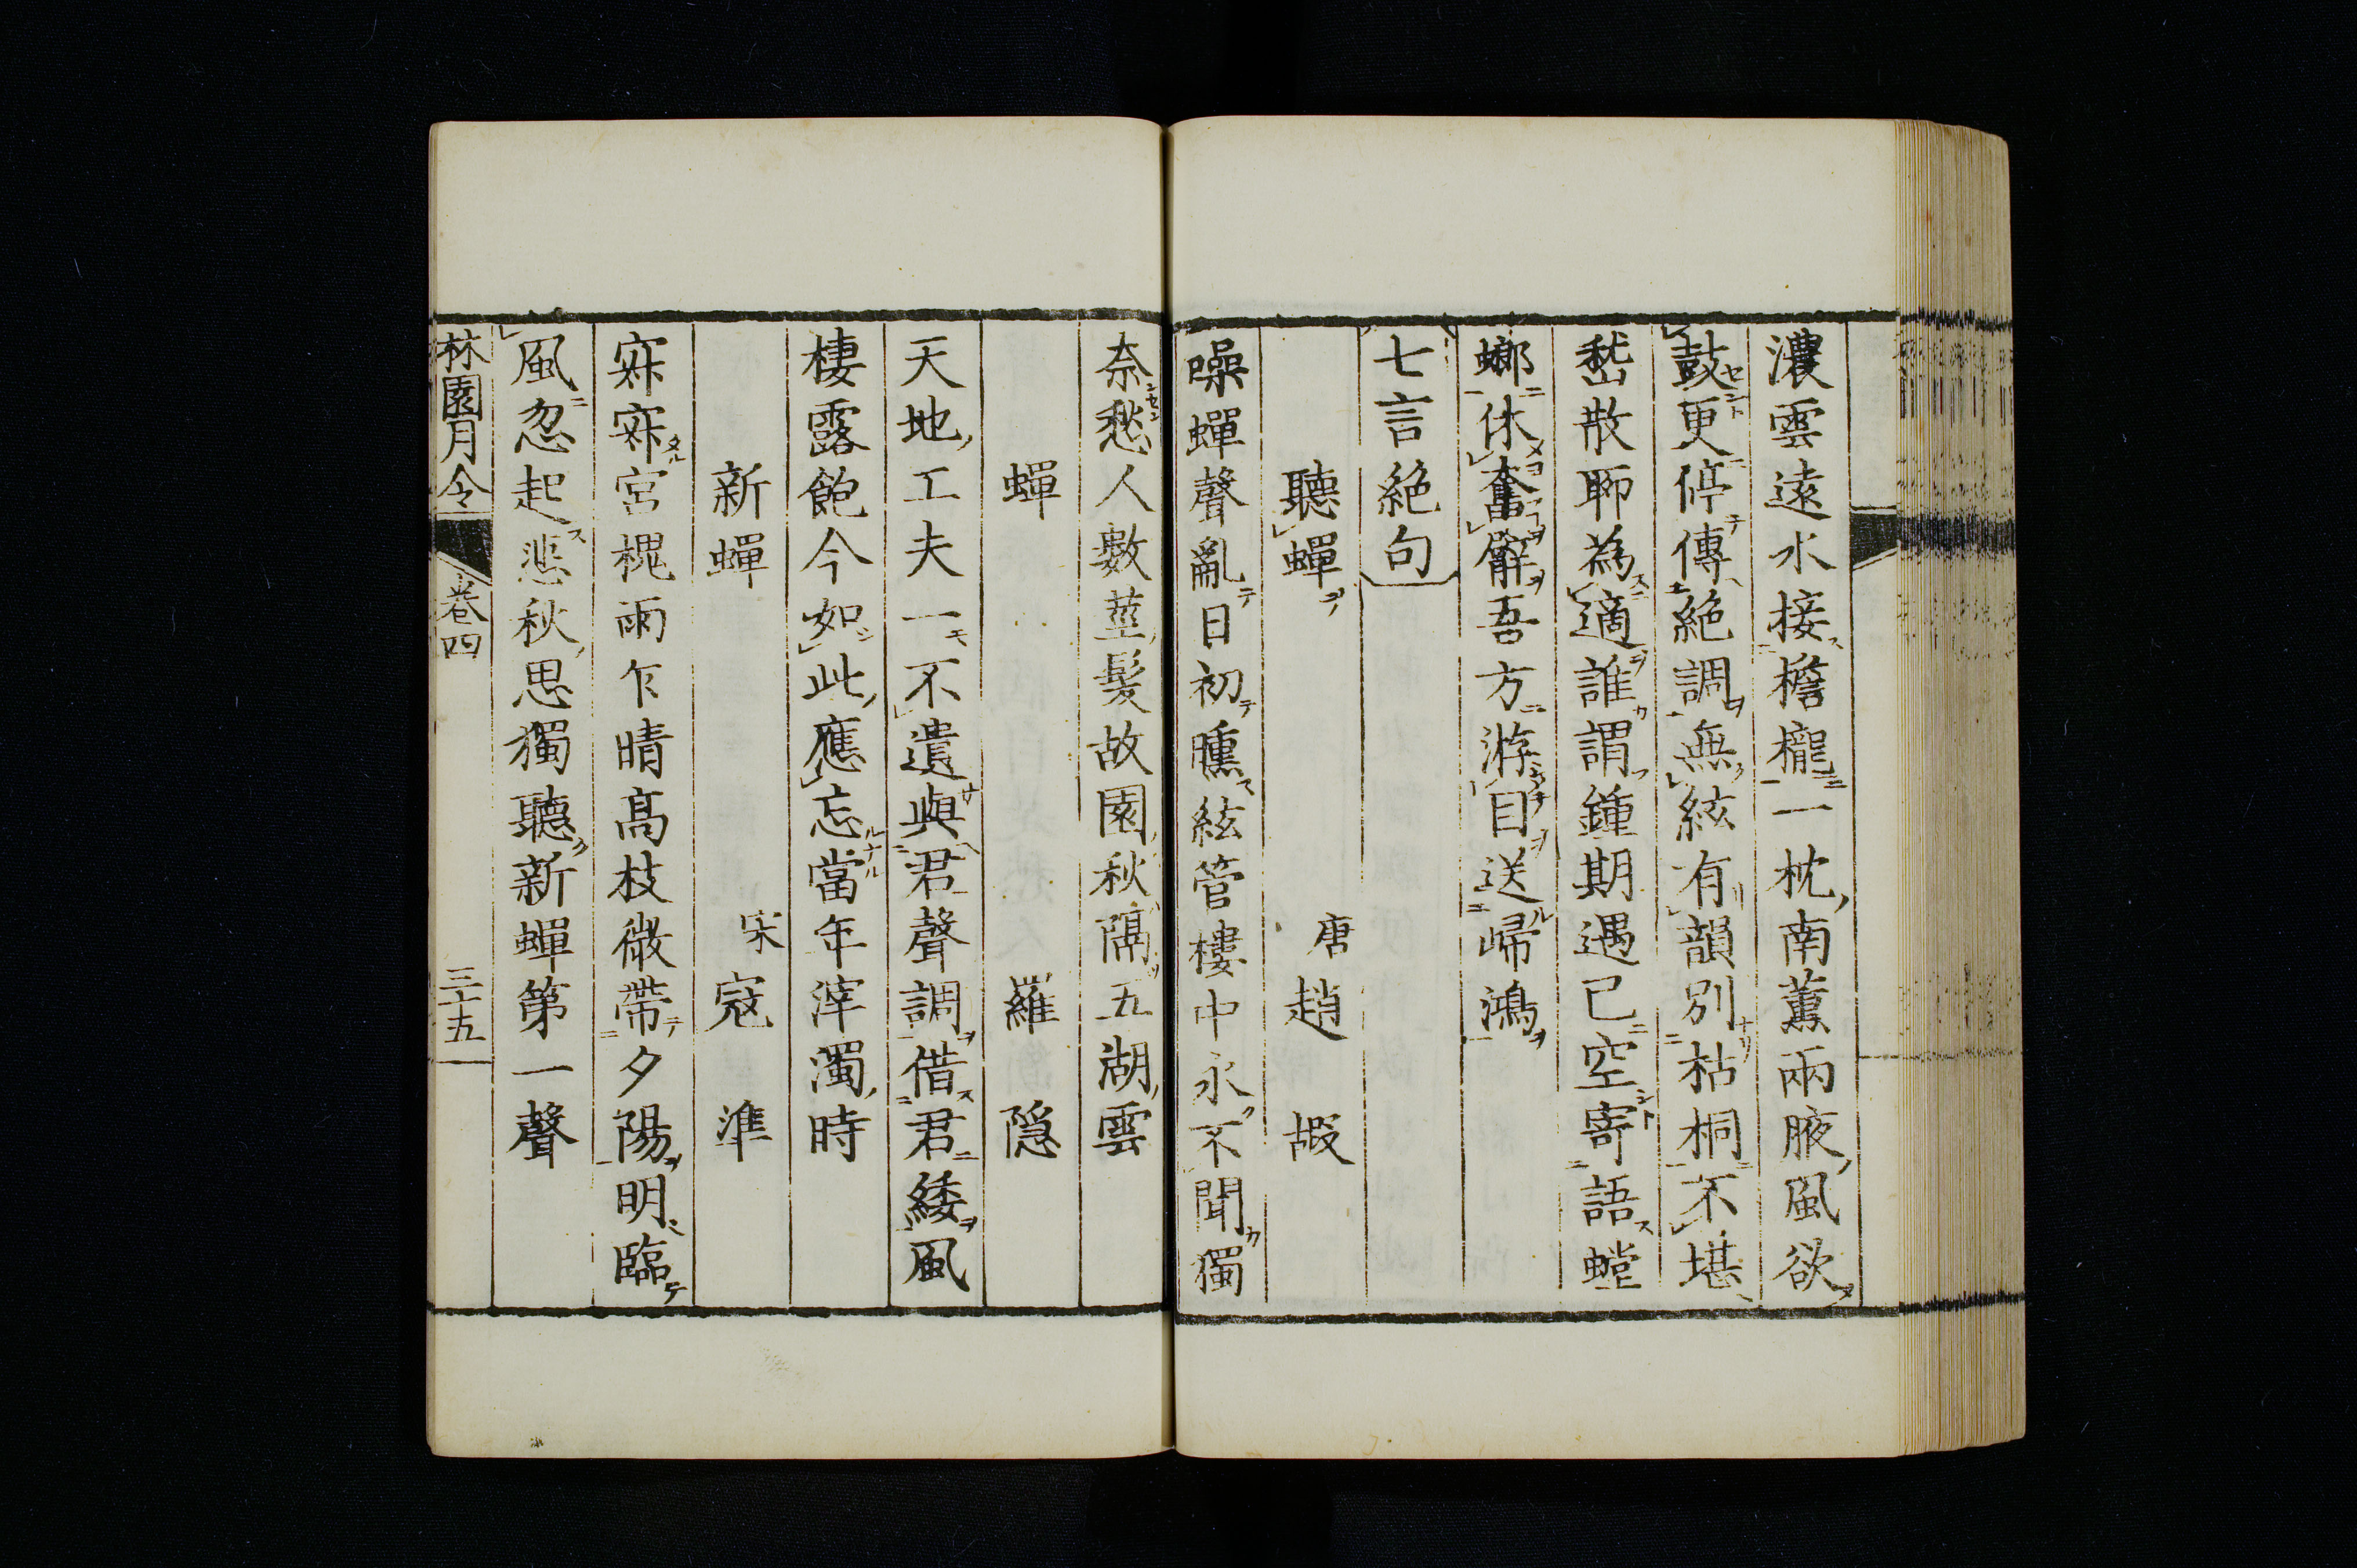 濃雲遠水接檐櫳一枕南薫兩腋風欲
鼓更停傳絶調無絃有韻別枯桐不堪
嵆散聊為適誰謂鍾期遇已空寄語螳
螂休奮臂吾方游目送歸鴻
七言絶句
聽蟬 唐 趙嘏
噪蟬聲亂日初曛絃管樓中永不聞獨
奈愁人數莖髮故園秋隔五湖雲
蟬 羅隐
天地工夫一不遺與君聲調借君緌風
棲露飽今如此應忘當年滓濁時
新蟬 宋 寇準
寂寂宮槐雨乍晴髙枝微帶夕陽明臨
風忽起悲秋思獨聽新蟬第一聲
林園月令 卷四 三十五